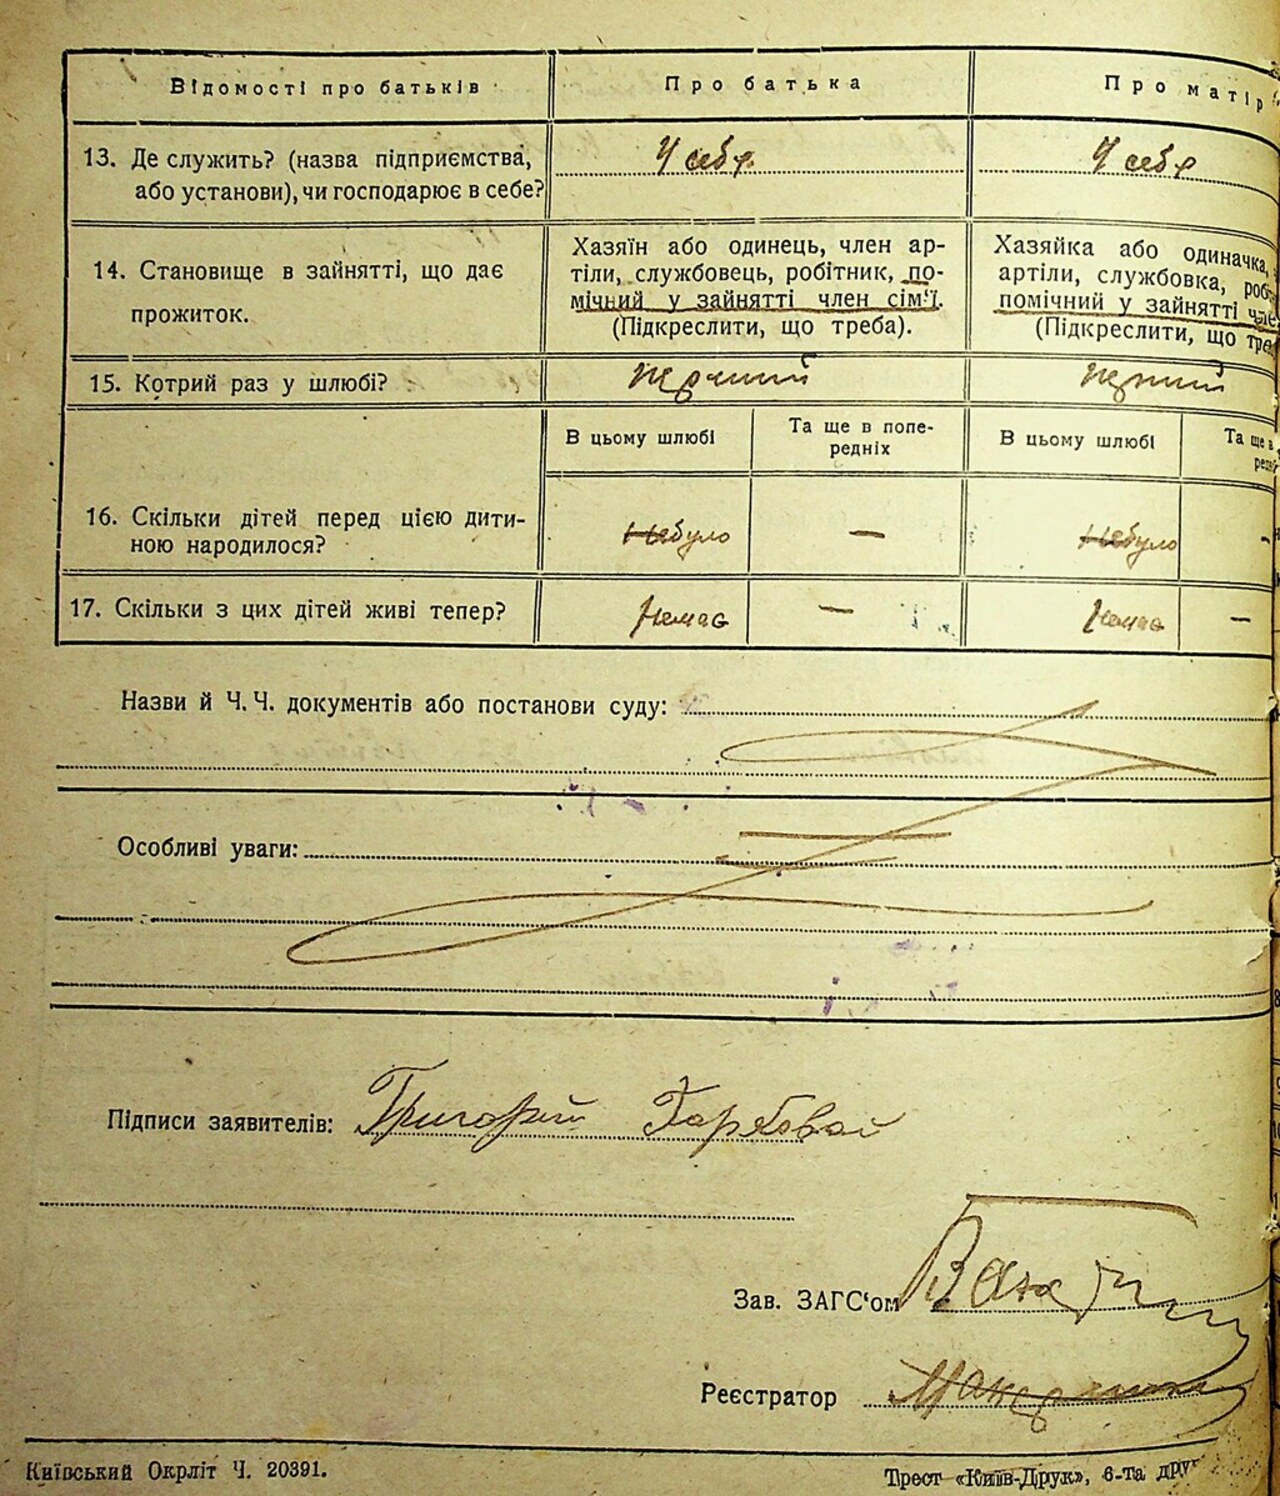 Відомості про батьків
Про батька
Про матір
13. Де служить? (назва підприємства,
або установи), чи господарює в себе?
У себе
У себе
14. Становище в зайнятті, що дає
прожиток.
Хазяїн або одинець, член ар-
тіли, службовець, робітник, по-
мічний у зайнятті член сім'ї.
(Підкреслити, що треба).
Хазяйка або одиначка,
артіли, службовка, роб
помічний у зайнятті чле
(Підкреслити, що треб
15. Котрий раз у шлюбі?
перший
перший
В цьому шлюбі
Та ще в попе-
редніх
В цьому шлюбі
Та ще в
редн
16. Скільки дітей перед цією дити-
ною народилося?
Небуло
—
Небуло
-
17. Скільки з цих дітей живі тепер?
Немає
—
Немає
—
Назви й Ч. Ч. документів або постанови суду:
Особливі уваги:
Підписи заявителів: Григорій Горбовай
Зав. ЗАГС'ом
Реєстратор
Київський Окрліт Ч. 20391.
Трест «Київ-Друк», 6-та друк